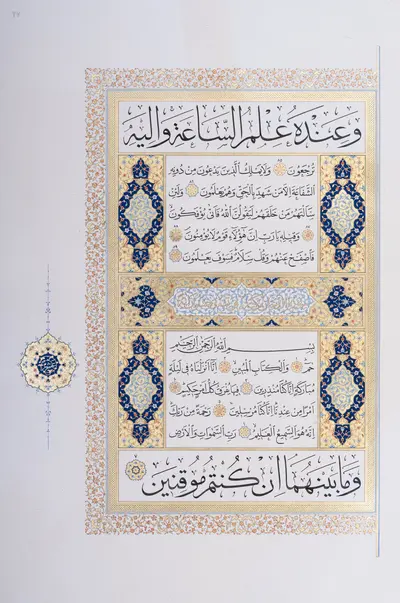 وَعِنْدَهُ عِلْمُ السَّاعَةِ وَإِلَيْهِ
تُرْجَعُونَ وَلَا يَمْلِكُ الَّذِينَ يَدْعُونَ مِنْ دُونِهِ
الشَّفَاعَةَ إِلَّا مَنْ شَهِدَ بِالْحَقِّ وَهُمْ يَعْلَمُونَ وَلَئِنْ
سَأَلْتَهُمْ مَنْ خَلَقَهُمْ لَيَقُولُنَّ اللَّهُ فَأَنَّى يُؤْفَكُونَ
وَقِيلِهِ يَا رَبِّ إِنَّ هَؤُلَاءِ قَوْمٌ لَا يُؤْمِنُونَ
فَاصْفَحْ عَنْهُمْ وَقُلْ سَلَامٌ فَسَوْفَ يَعْلَمُونَ
بِسْمِ اللَّهِ الرَّحْمَنِ الرَّحِيمِ
حم وَالْكِتَابِ الْمُبِينِ إِنَّا أَنْزَلْنَاهُ فِي لَيْلَةٍ
مُبَارَكَةٍ إِنَّا كُنَّا مُنْذِرِينَ فِيهَا يُفْرَقُ كُلُّ أَمْرٍ حَكِيمٍ
أَمْرًا مِنْ عِنْدِنَا إِنَّا كُنَّا مُرْسِلِينَ رَحْمَةً مِنْ رَبِّكَ
إِنَّهُ هُوَ السَّمِيعُ الْعَلِيمُ رَبِّ السَّمَوَاتِ وَالْأَرْضِ
وَمَا بَيْنَهُمَا إِنْ كُنْتُمْ مُوقِنِينَ